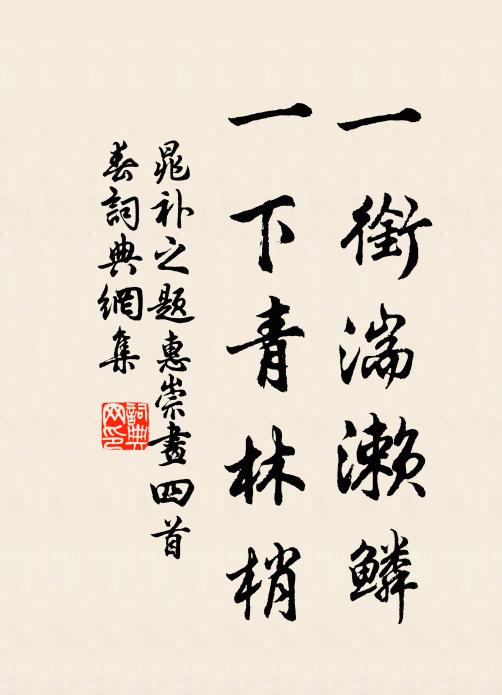 一銜湍瀨鱗
一下青林梢
晁补之題惠崇畫四首
春詞典網集
詞典
网印